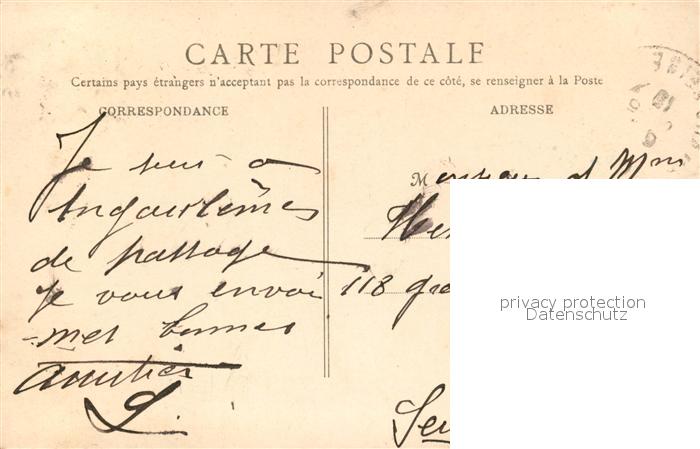 CARTE POSTALE
Certains pays étrangers n'acceptant pas la correspondance de ce côté, se renseigner à la Poste
CORRESPONDANCE
ADRESSE
Je suis a
Angoulêmes
de passage
Je vous envoi
mes bonnes
amitiés
L.
Monsieur et Mme
118
privacy protection
Datenschutz